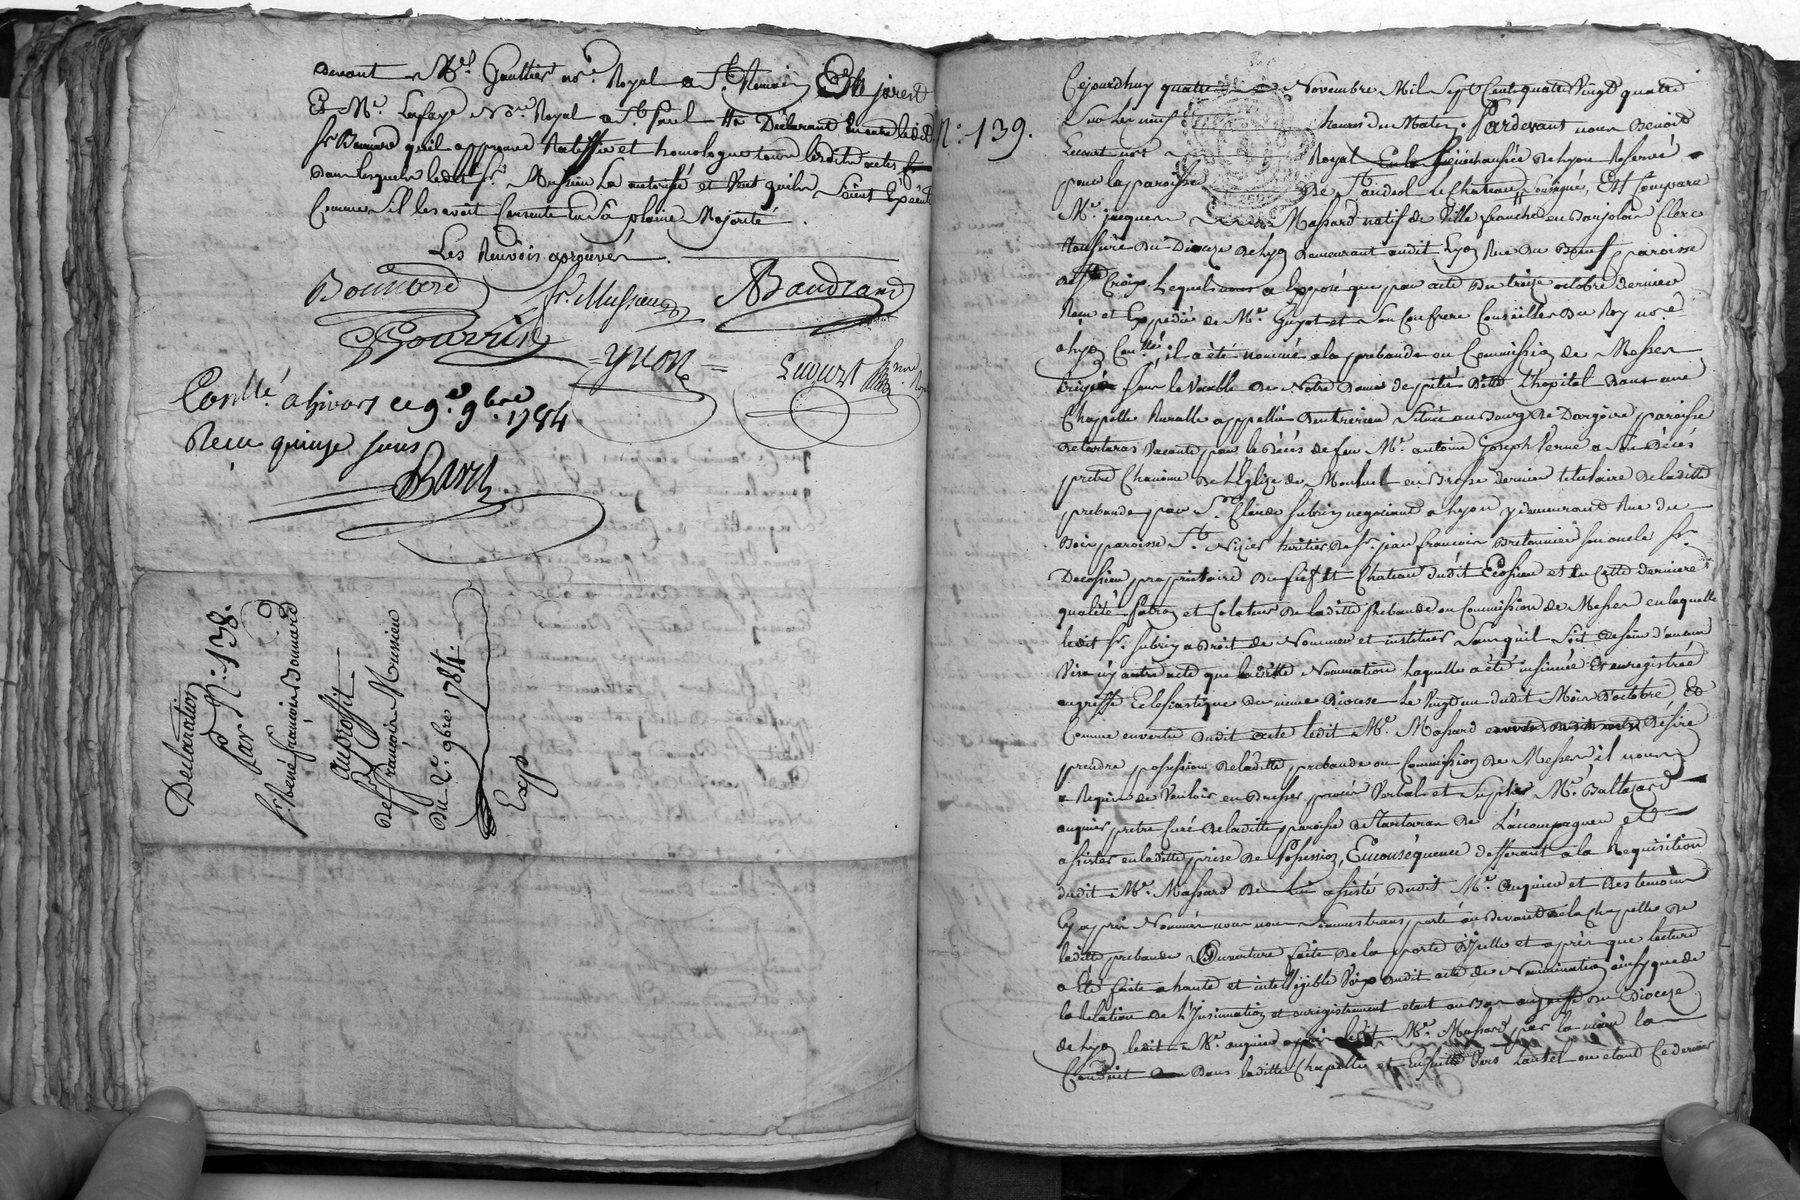 devant Me Gaultier nre Royal a St Romain
Et Me Lafay Nre Royal a St Paul Déclarant En outre ledit
Sr Bonnard quil approuve Ratiffie et homologue tous lesdits actes
dans lesquels ledit Sr Mussieu La autorisé et Veut quils Soient Executés
Comme S'il les avoit Consentis En Sa plaine Majorité.
Les Renvois aprouvés.
Bonnard fs. Mussieu Baudrand
yvon Lecourt
Conllé. a Givors ce 9e. 9bre 1784
Recu quinze sous
Declaration
Par N: 138.
Sr. bené françois Bonnard
auproffit
de Sr françois Mussieu
Du 2e 9bre 1784.
Exp
N: 139.
Cejourdhuy quatre Novembre Mil Sept Cent quatre Vingt quatre
Sur Les neuf heures du Matin. Pardevant nous Benoist
Lecourt nore Royal En la Sénéchaussée de Lyon Reservé
pour la paroisse De St andeol le Chateau Soussigné, Est Comparu
Mr. jacques Massard natif de Ville franche en Baujolois Clerc
tonsuré du Dioceze de Lyon demeurant audit Lyon Rue du Boeuf paroisse
de Ste Croix. Lequel nous a Exposé que par acte du treize octobre dernier
Recu et Expedié de Me Guyot et Son Confrere Conseillers du Roy nres
a Lyon Conllé, il a été nommé a la prebande ou Commission de Messes
Erigée Sous le Vocable de Notre Dame de pitié Ditte L'hopital Dans une
Chapelle Ruralle appellée Situé au Bourg de Dargoire paroisse
de tartaras Vacante par le Décés de feu Mr. antoine Joseph Verne a Son Décés
pretre Chanoine de L'Eglize de Monluel en Bresse dernier titulaire de laditte
prebande par Sr. Claude Subrin negociant a Lyon y demeurant Rue du
Bois paroisse St. Nizier heritier de Sr. jean francois Bretonnier son oncle Sr
Decosieu proprietaire du fief et Chateau dudit Ecosieu et En Cette derniere
qualité Patron et Colateur de laditte Prebande ou Commission de Messes en laquelle
ledit Sr. Subrin a Droit de Nommer et instituer Sans qu'il Soit besoin d'aucun
Visa ny autre acte que laditte Nomination laquelle a été insinuée Et enregistrée
au greffe Eclesiastique du meme Dioceze Le Vingt un dudit Mois D'octobre Et
Comme en vertu dudit acte ledit Mr. Massard Désire
prendre possession de laditte prebande ou Commission de Messes il nous
a Requis de Vouloir en Dresser procés Verbal et Suplié Mr. Baltazard
auquier pretre Curé de laditte paroisse de tartaras De L'acompagner et
assister en laditte prise de Possession, En consequence defferant a la Requisition
dudit Mr. Massard De Lui assisté dudit Mr. auquier et des temoins
Cy après Nommés nous nous Sommes transporté au Devant de la Chapelle de
laditte prebande Ouverture faite de la porte D'icelle et après que lecture
a été faite a haute et intelligible Voix dudit acte de Nomination ainsy que de
la Relation de L'Insinuation et enregistrement etant au Bas au greffe du Dioceze
de Lyon ledit Mr. auquier a pris ledit Mr. Massard par la main la
Conduit Dans laditte Chapelle et Ensuitte Vers L'autel ou etant Ce dernier